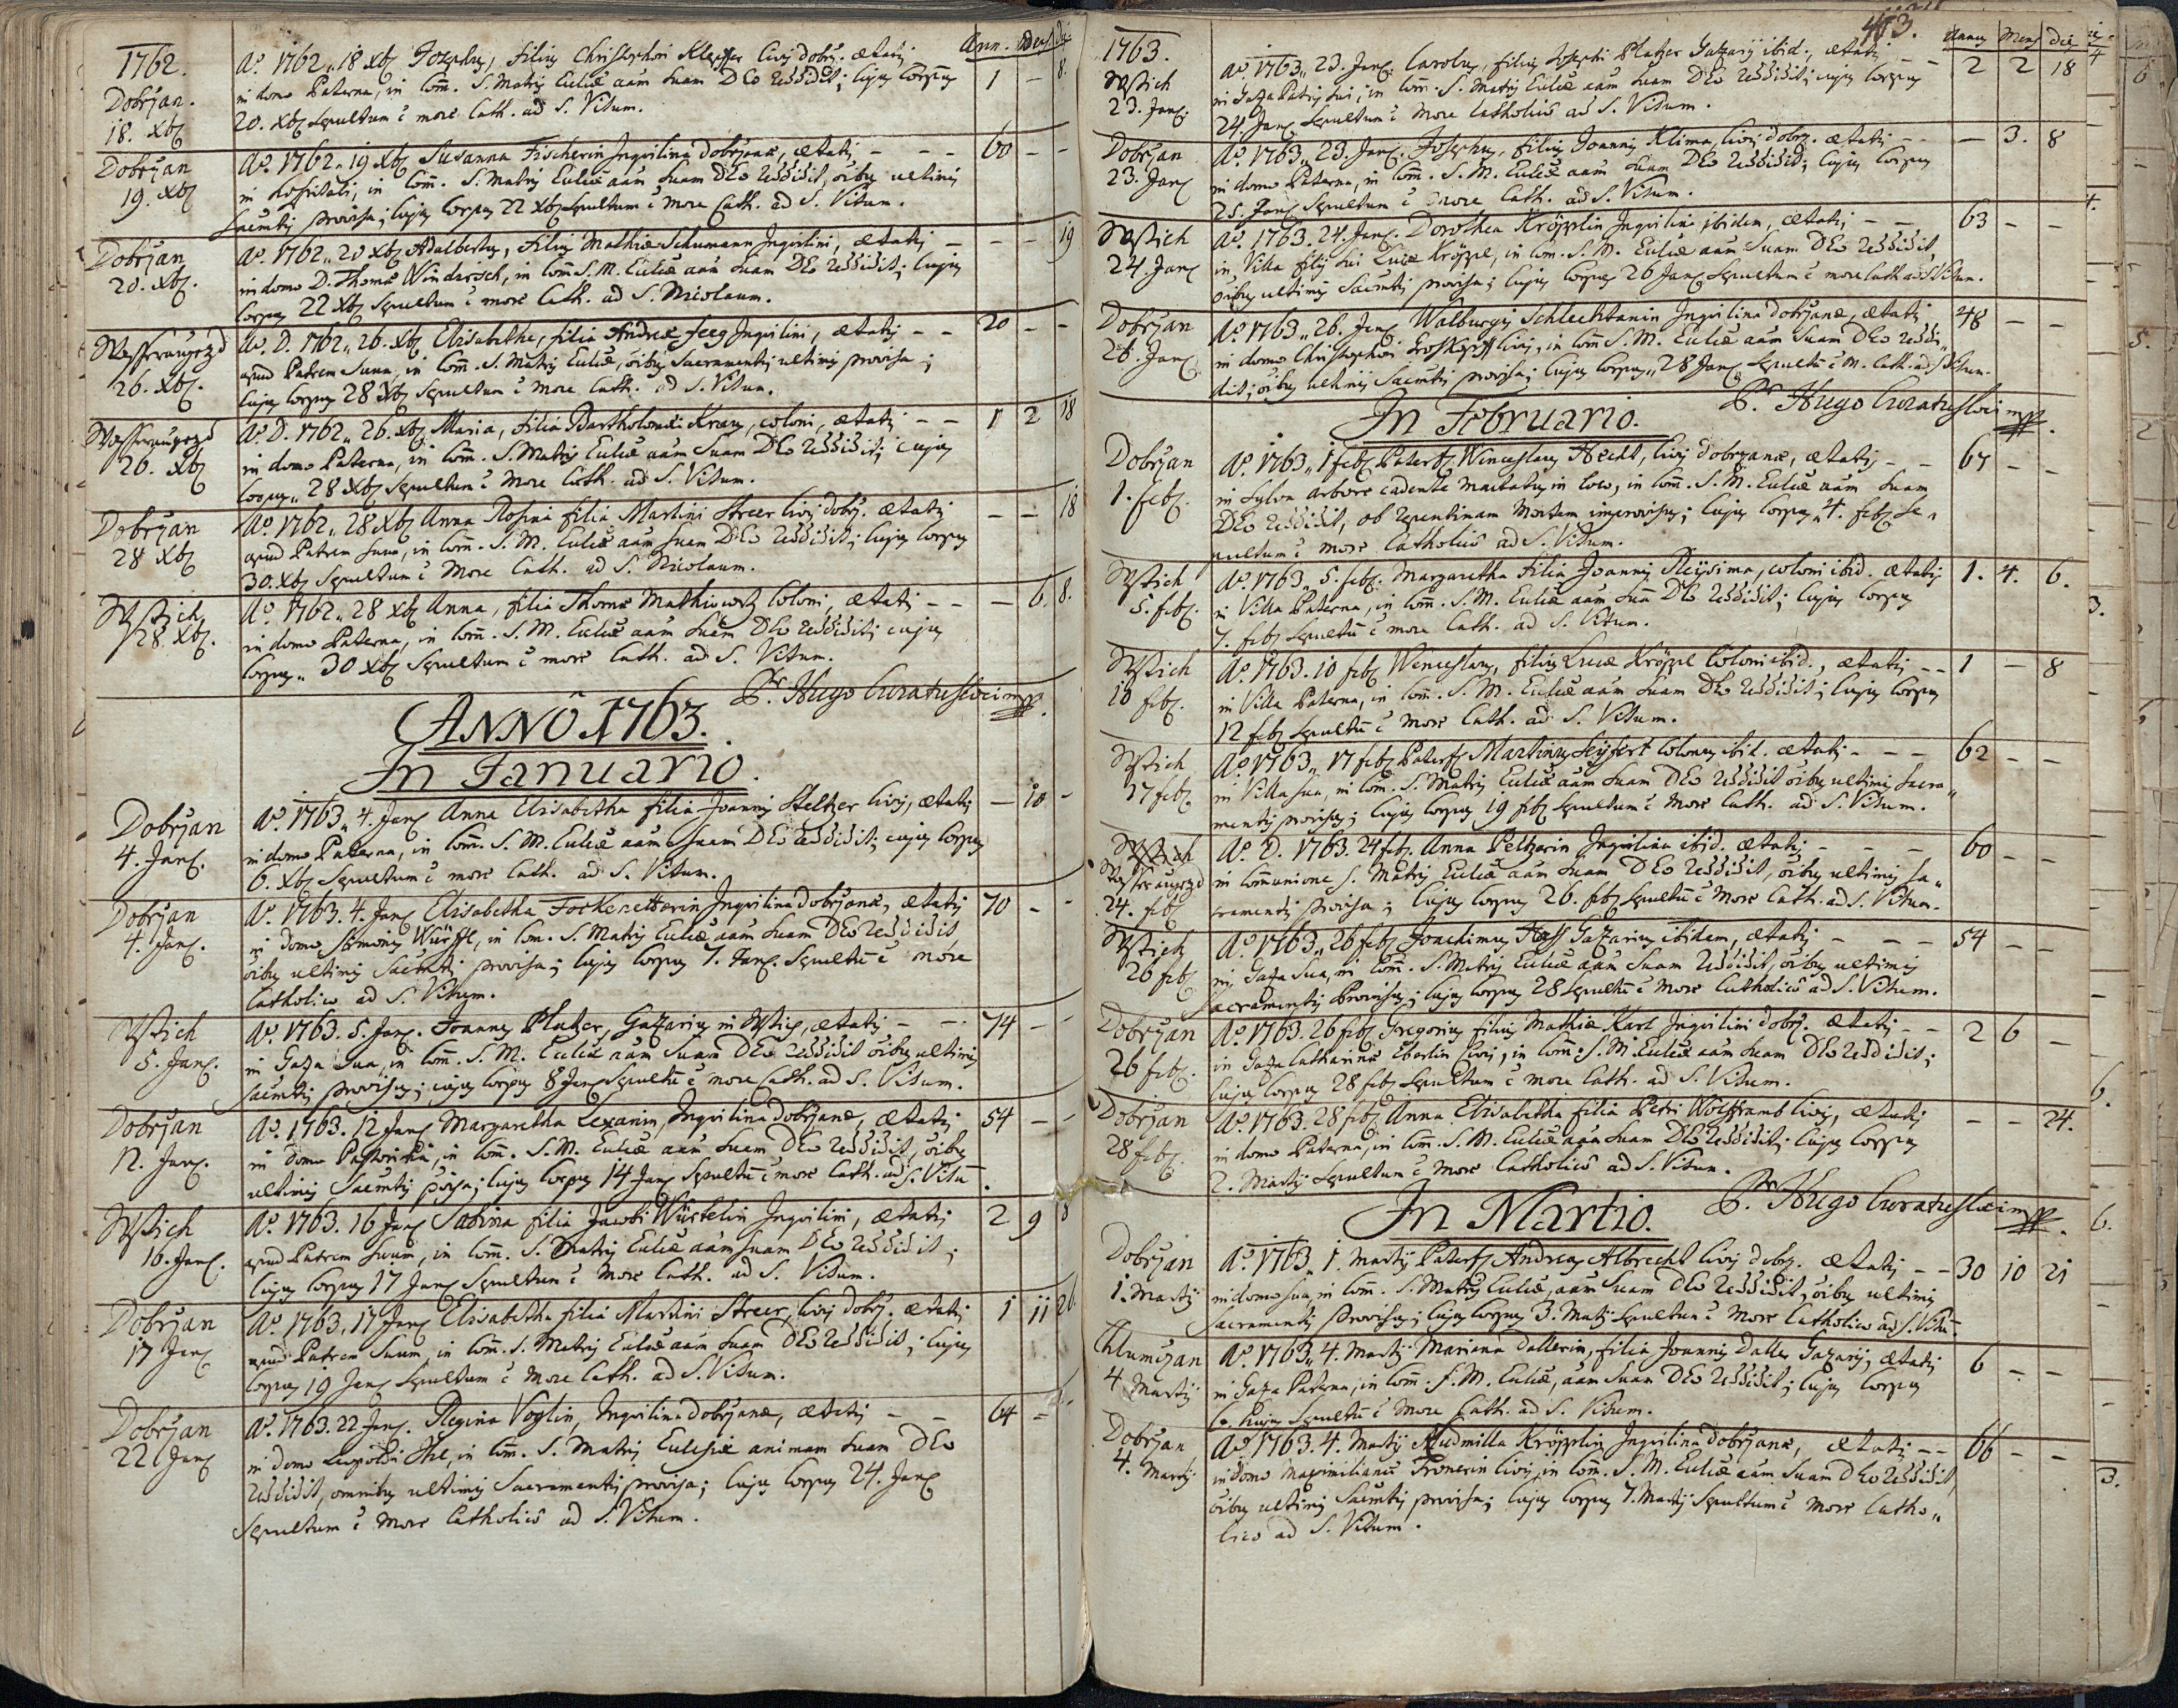 1762.
Ann. Mens. Di.
Dobrzan.
18. Xbr
Aō. 1762 „ 18 Xbr Josephus, filius Christophori Klepffer Civis dobrz. ætatis 1 - 8.
in domo Paterna, in Com̄. S. Matris Eccliæ aām suam DEo reddidit; cujus Corpus
20. Xbr sepultum ē more Cath. ad S. Vitum.
Dobrzan
19. Xbr
Aō. 1762 „ 19 Xbr Susanna Fischerin Inquilina dobrzanæ, ætatis - - - 60 - -
in Hospitali, in Com̄. S. Matris Eccliæ aām suam DEo reddidit, oībus ultimis
Sacmtis provisa; cujus Corpus 22 Xbr sepultum ē more Cath. ad S. Vitum.
Dobrzan
20. Xbr.
Aō. 1762 „ 20 Xbr Adalbertus, filius Mathiæ Schumann Inquilini, ætatis - - - 19
in domo D. Thomæ Windirsch, in Com̄ S. M. Eccliæ aām suam DEo reddidit; cujus
Corpus 22 Xbr sepultum ē more Cath. ad S. Nicolaum.
Wasseraugezd
26. Xbr.
Aō. D. 1762 „ 26. Xbr Elisabetha, filia Andreæ feeg Inquilini, ætatis - - 20 - -
apud Patrem suum, in Com̄. S. Matris Eccliæ, oībus Sacramentis ultimis provisa;
cujus Corpus 28 Xbr sepultum ē More Cath. ad S. Vitum.
Wasseraugezd
26. Xbr
Aō. D. 1762 „ 26. Xbr Maria, filia Bartholomæi Kraus, coloni, ætatis - - 1 2 18
in domo Paterna, in Com̄. S. Matris Eccliæ aām suam DEo reddidit; cujus
Corpus „ 28 Xbr sepultum ē More Cath. ad S. Vitum.
Dobrzan
28 Xbr
Aō 1762 „ 28 Xbr Anna Rosina filia Martini Streer Civis dobrz. ætatis - - 18
apud Patrem suum, in Com̄. S. M. Eccliæ aām suam DEo reddidit; cujus Corpus
30. Xbr sepultum ē More Cath. ad S. Nicolaum.
Wstich
28 Xbr.
Aō. 1762 „ 28 Xbr Anna, filia Thomæ Mathiowetz Coloni, ætatis - - - 6. 8.
in domo Paterna, in Com̄. S. M. Eccliæ aām suam DEo reddidit; cujus
Corpus „ 30 Xbr sepultum ē more Cath. ad S. Vitum.
Pr. Hugo Curatus loci mpp.
ANNO 1763.
In Januario.
Dobrzan
4. Janr.
Aō. 1763 „ 4. Janr Anna Elisabetha filia Joannis Steltzer Civis, ætatis - 10 -
in domo Paterna, in Com̄. S. M. Eccliæ aām suam DEo reddidit; cujus Corpus
6. Xbr sepultum ē more Cath. ad S. Vitum.
Dobrzan
4. Janr.
Aō. 1763. 4. Janr Elisabetha Fockenetterin Inquilina dobrzanæ, ætatis 70 - -
in domo Simonis Würffl, in Com. S. Matris Eccliæ aām suam DEo reddidit,
oībus ultimis Sacmtis provisa; cujus Corpus 7. Janr. sepultū ē more
Catholico ad S. Vitum.
Wstich
5. Janr.
Aō. 1763. 5. Janr. Joannes Platzer, Gazarius in Wstich, ætatis - - 74 - -
in Gaza sua, in Com̄. S. M. Eccliæ aām suam DEo reddidit oībus ultimis
Sacmtis provisus; cujus Corpus 8 Janr sepultū ē more Cath. ad S. Vitum.
Dobrzan
12. Janr.
Aō. 1763. 12 Janr Margaretha Lexanin, Inquilina dobrzanæ, ætatis 54 - -
in domo Pastoritia, in Com̄. S. M. Eccliæ aām suam DEo reddidit, oībus
ultimis Sacmtis pvisa; cujus Corpus 14 Janr sepultū ē more Cath. ad S. Vitū.
Wstich
16. Janr.
Aō. 1763. 16 Janr Sabina filia Jacobi Würtelin Inquilini, ætatis 2 9 8
apud Patrem suum, in Com̄. S. Matris Eccliæ aām suam DEo reddidit;
cujus Corpus 17 Janr sepultum ē More Cath. ad S. Vitum.
Dobrzan
17 Janr
Aō. 1763. 17 Janr Elisabetha filia Martini Streer, Civis dobrz. ætatis 1 11 26.
apud Patrem suum, in Com̄. S. Matris Eccliæ aām suam DEo reddidit; cujus
Corpus 19 Janr sepultum ē More Cath. ad S. Vitum.
Dobrzan
22 Janr
Aō. 1763. 22. Janr. Regina Voglin, Inquilina dobrzanæ, ætatis - - 64 - -
in domo Leopoldi Hel, in Com̄. S. Matris Ecclesiæ animam suam DEo
reddidit, omnibus ultimis Sacramentis provisa; cujus Corpus 24. Janr
sepultum ē More Catholicō ad S. Vitum.
1763.
413.
Annus Mens Die
Wstich
23. Janr.
Aō. 1763 „ 23. Janr. Carolus, filius Josephi Platzer Gazarij ibid., ætatis - - 2 2 18
in Gaza Patris sui, in Com̄. S. Matris Eccliæ aām suam DEo reddidit; cujus Corpus
24. Janr sepultum ē More Catholicō ad S. Vitum.
Dobrzan
23. Janr
Aō. 1763 „ 23. Janr. Josephus, filius Joannis Klima, Civis dobrz. ætatis - - - 3. 8
in domo Paterna, in Com̄. S. M. Eccliæ aām suam DEo reddidit; cujus Corpus
25. Janr sepultum ē more Cath. ad S. Vitum.
Wstich
24. Janr
Aō. 1763. 24. Janr. Dorothea Kröpplin Inquilina ibidem, ætatis - - 63 - -
in Villa filij sui Lucæ Kröppl, in Com. S. M. Eccliæ aām suam DEo reddidit,
oībus ultimis Sacmtis provisa; cujus Corpus 26 Janr sepultum ē more Cath ad S. Vitum.
Dobrzan
26. Janr
Aō. 1763 „ 26. Janr Walburgis Schlechtanin Inquilina dobrzanæ, ætatis 48 - -
in domo Christophori Groskopff Civis, in Com̄ S. M. Eccliæ aām suam DEo reddi„
dit; oībus ultimis Sacmtis provisa; cujus Corpus „ 28 Janr sepultū ē M. Cath. ad S. Vitum.
Pr. Hugo Curatus loci mpp.
In Februario.
Dobrzan
1. febr.
Aō. 1763 „ 1 febr. Paterfs Wenceslaus Hecht, Civis dobrzanæ, ætatis - - 67 - -
in sylva arbore cadente mactatus in loco, in Com̄. S. M. Eccliæ aām suam
DEo reddidit, ob repentinam Mortem improvisus; cujus Corpus „ 4. febr se„
pultum ē more Catholicō ad S. Vitum.
Wstich
5. febr.
Aō. 1763 „ 5. febr. Margaretha filia Joannis Neysima, coloni ibid. ætatis 1. 4. 6.
in Villa Paterna, in Com̄. S. M. Eccliæ aām suā DEo reddidit; cujus Corpus
7. febr sepultū ē more Cath. ad S. Vitum.
Wstich
10 febr.
Aō. 1763. 10 febr Wenceslaus, filius Lucæ Kröppl Coloni ibid., ætatis - - 1 - 8
in Villa Paterna, in Com̄. S. M. Eccliæ aām suam DEo reddidit; cujus Corpus
12 febr sepultū ē More Cath. ad S. Vitum.
Wstich
17 febr.
Aō. 1763 „ 17 febr Paterfs Martinus Seyfert Colonus ibid. ætatis - - - 62 - -
in Villa sua, in Com. S. Matris Eccliæ aām suam DEo reddidit oībus ultimis Sacra„
mentis provisus; cujus Corpus 19 febr sepultum ē More Cath. ad S. Vitum.
Wstich
Wasseraugezd
24. febr
Aō. D. 1763. 24 febr. Anna Peltzerin Inquilina ibid. ætatis - - - 60 - -
in Communione S. Matris Eccliæ aām suam DEo reddidit, oībus ultimis Sa„
cramentis provisa; cujus Corpus 26. febr sepultū ē More Cath. ad S. Vitum.
Wstich
26 febr
Aō. 1763 „ 26 febr Joachimus Hass Gazarius ibidem, ætatis - - - 54 - -
in Gaza sua, in Com̄. S. Matris Eccliæ aām suam reddidit, oībus ultimis
Sacramentis Provisus; cujus Corpus 28 sepultū ē More Catholicō ad S. Vitum.
Dobrzan
26 febr.
Aō. 1763. 26 febr Gregorius filius Mathiæ Karl Inquilini dobrz. ætatis - - 2 6 -
in Gaza Catharinæ Eberlin Civis, in Com̄. S. M. Eccliæ aām suam DEo reddidit;
cujus Corpus 28 febr sepultum ē more Cath. ad S. Vitum.
Dobrzan
28 febr.
Aō. 1763. 28 febr Anna Elisabetha filia Petri Wolfframb Civis, ætatis - - 24.
in domo Paterna, in Com̄. S. M. Eccliæ aām suam DEo reddidit; cujus Corpus
2. Martij sepultum ē More Catholicō ad S. Vitum.
Pr. Hugo Curatus loci mpp.
In Martio.
Dobrzan
1. Martij
Aō. 1763 „ 1. Martij Paterfs Andreas Albrecht Civis dobrz. ætatis - - 30 10 21
in domo sua, in Com̄. S. Matris Eccliæ, aām suam DEo reddidit, oībus ultimis
Sacramentis Provisus; cujus Corpus 3. Martij sepultum ē More Catholico ad S. Vitū.
Chlumczan
4 Martij
Aō. 1763 „ 4. Martij Mariana Dallerin, filia Joannis Daller Gazarij, ætatis 6 - -
in Gaza Paterna, in Com̄. S. M. Eccliæ, aām suam DEo reddidit; cujus Corpus
6. hujus sepultū ē More Cath. ad S. Vitum.
Dobrzan
4. Martij
Aō. 1763. 4. Martij Ludmilla Kröpplin Inquilina dobrzanæ, ætatis - - 66 - -
in domo Maximilianæ Pronerin Civis, in Com̄. S. M. Eccliæ aām suam DEo reddidit,
oībus ultimis Sacmtis provisa; cujus Corpus 7. Martij sepultum ē More Catho„
lico ad S. Vitum.